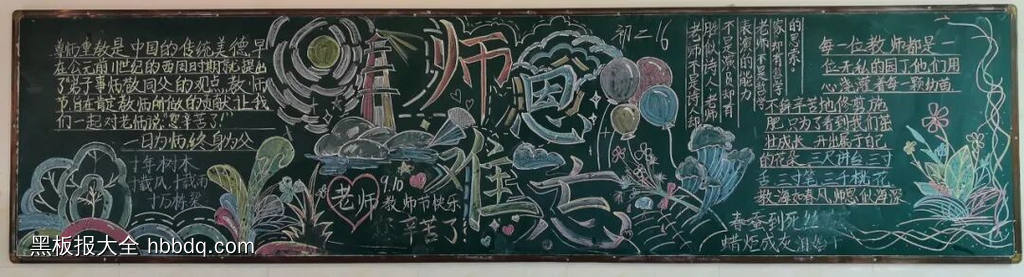 尊师重教是中国的传统美德,早
在公元前11世纪的西周时期就提出
了弟子事师,敬同父的观点,教师
节旨在肯定教师所做的贡献,让我
们一起对老师说“您辛苦了!”
一日为师终身为父
十年树木
十载风十载雨
十万栋梁
师恩
难忘
老师
9.10
教师节快乐
辛苦了!
初二16
老师不是诗人,却
胜似诗人,老师
不是演员,却有
表演的能力
老师不是哲学
家,却有哲学
的思索。
每一位教师都是一
位无私的园丁他们用
心浇灌着每一颗幼苗
不辞辛苦地修剪施
肥只为了看到我们茁
壮成长,开出属于自己
的花朵,三尺讲台三寸
舌三寸笔三千桃花
教海如春风师恩似海深
春蚕到死丝
蜡炬成灰泪
黑板报大全 hbbdq.com